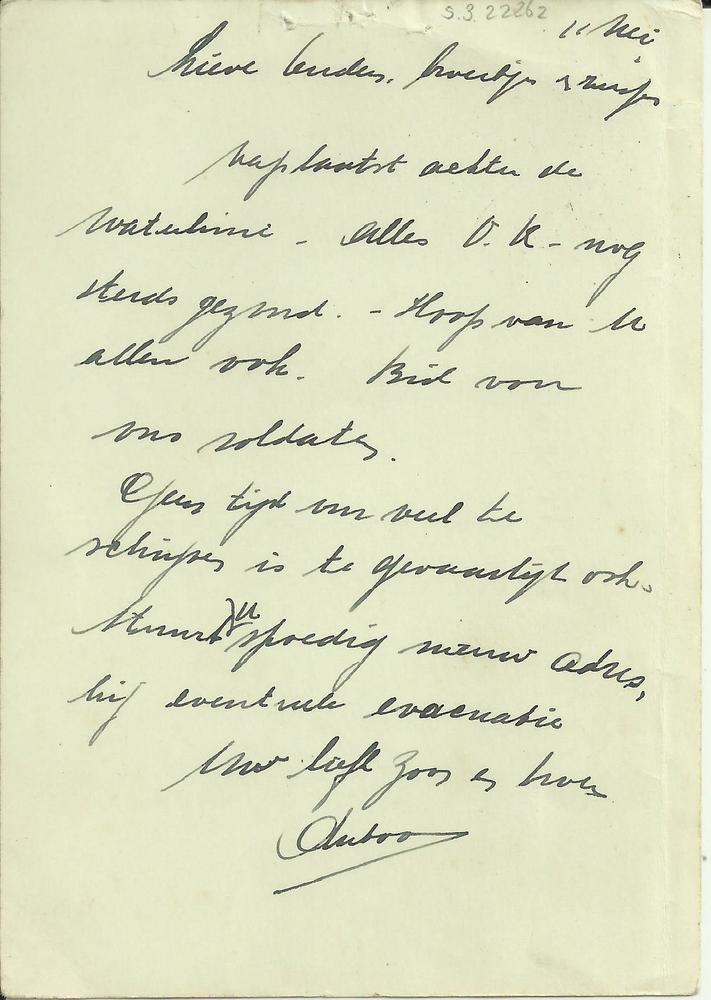 S.S. 22262
11 Mei
Lieve Ouders, broertjes & zusjes
Verplaatst achter de
Waterlinie - Alles O.K - nog
steeds gezond. - Hoop van U
allen ook. Bid voor
ons soldaten.
Geen tijd om veel te
schrijven is te gevaarlijk ook.
Stuurt U spoedig nieuw adres,
bij eventuele evacuatie
Uw liefh zoon en broer